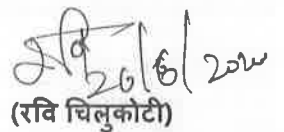 रवि
20/6/2020
(रवि चिलुकोटी)